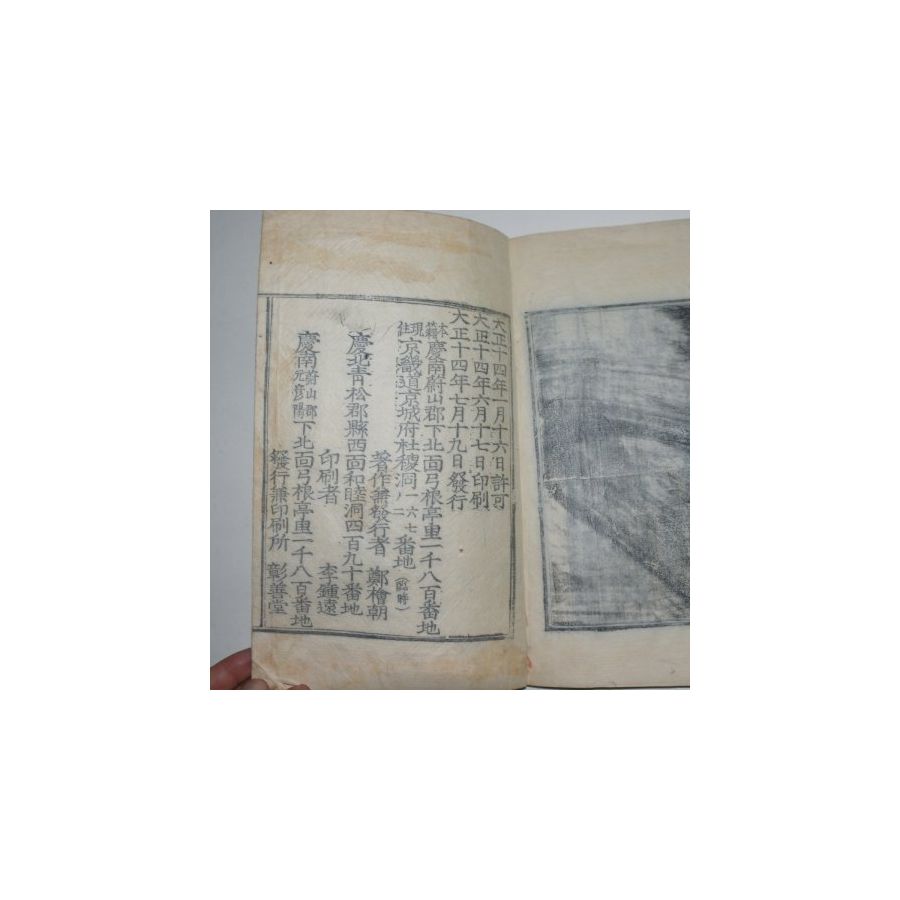 大正十四年一月十六日許可
大正十四年六月十七日印刷
大正十四年七月十九日發行
本籍慶南蔚山郡下北面弓根亭里一千八百番地
現住京畿道京城府杜稷洞一六七ノ二番地(臨時)
著作兼發行者 鄭檜朝
慶北靑松郡縣西面和睦洞四百九十番地
印刷者 李鍾遠
慶南蔚山郡元彦陽下北面弓根亭里一千八百番地
發行兼印刷所 彰善堂